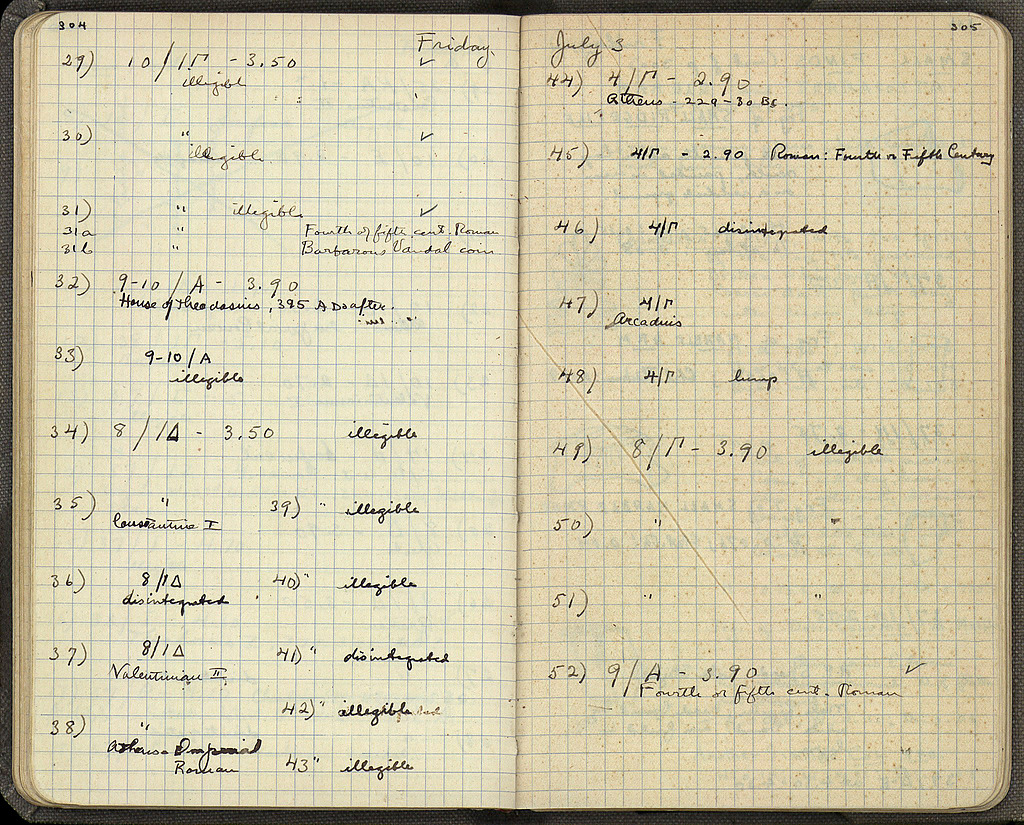 304
Friday,
29) 10/ΙΓ - 3.50 ✓
illegible
30) " ✓
illegible
31) " illegible ✓
31a " Fourth or fifth cent. Roman
31b " Barbarous Vandal coin
32) 9-10/A - 3.90
House of Theodosius, 395 AD after.
33) 9-10/A
illegible
34) 8/ΙΔ - 3.50 illegible
35) " 39) " illegible
Constantine I
36) 8/ΙΔ 40) " illegible
disintegrated
37) 8/ΙΔ 41) " disintegrated
Valentinian II
42) " illegible
38) "
Athens Imperial
Roman 43 " illegible
305
July 3
44) 4/Γ - 2.90
Athens - 229-30 BC.
45) 4/Γ - 2.90 Roman: Fourth or Fifth Century
46) 4/Γ disintegrated
47) 4/Γ
Arcadius
48) 4/Γ lump
49) 8/Γ - 3.90 illegible
50) " "
51) " "
52) 9/A - 3.90 ✓
Fourth or fifth cent. Roman